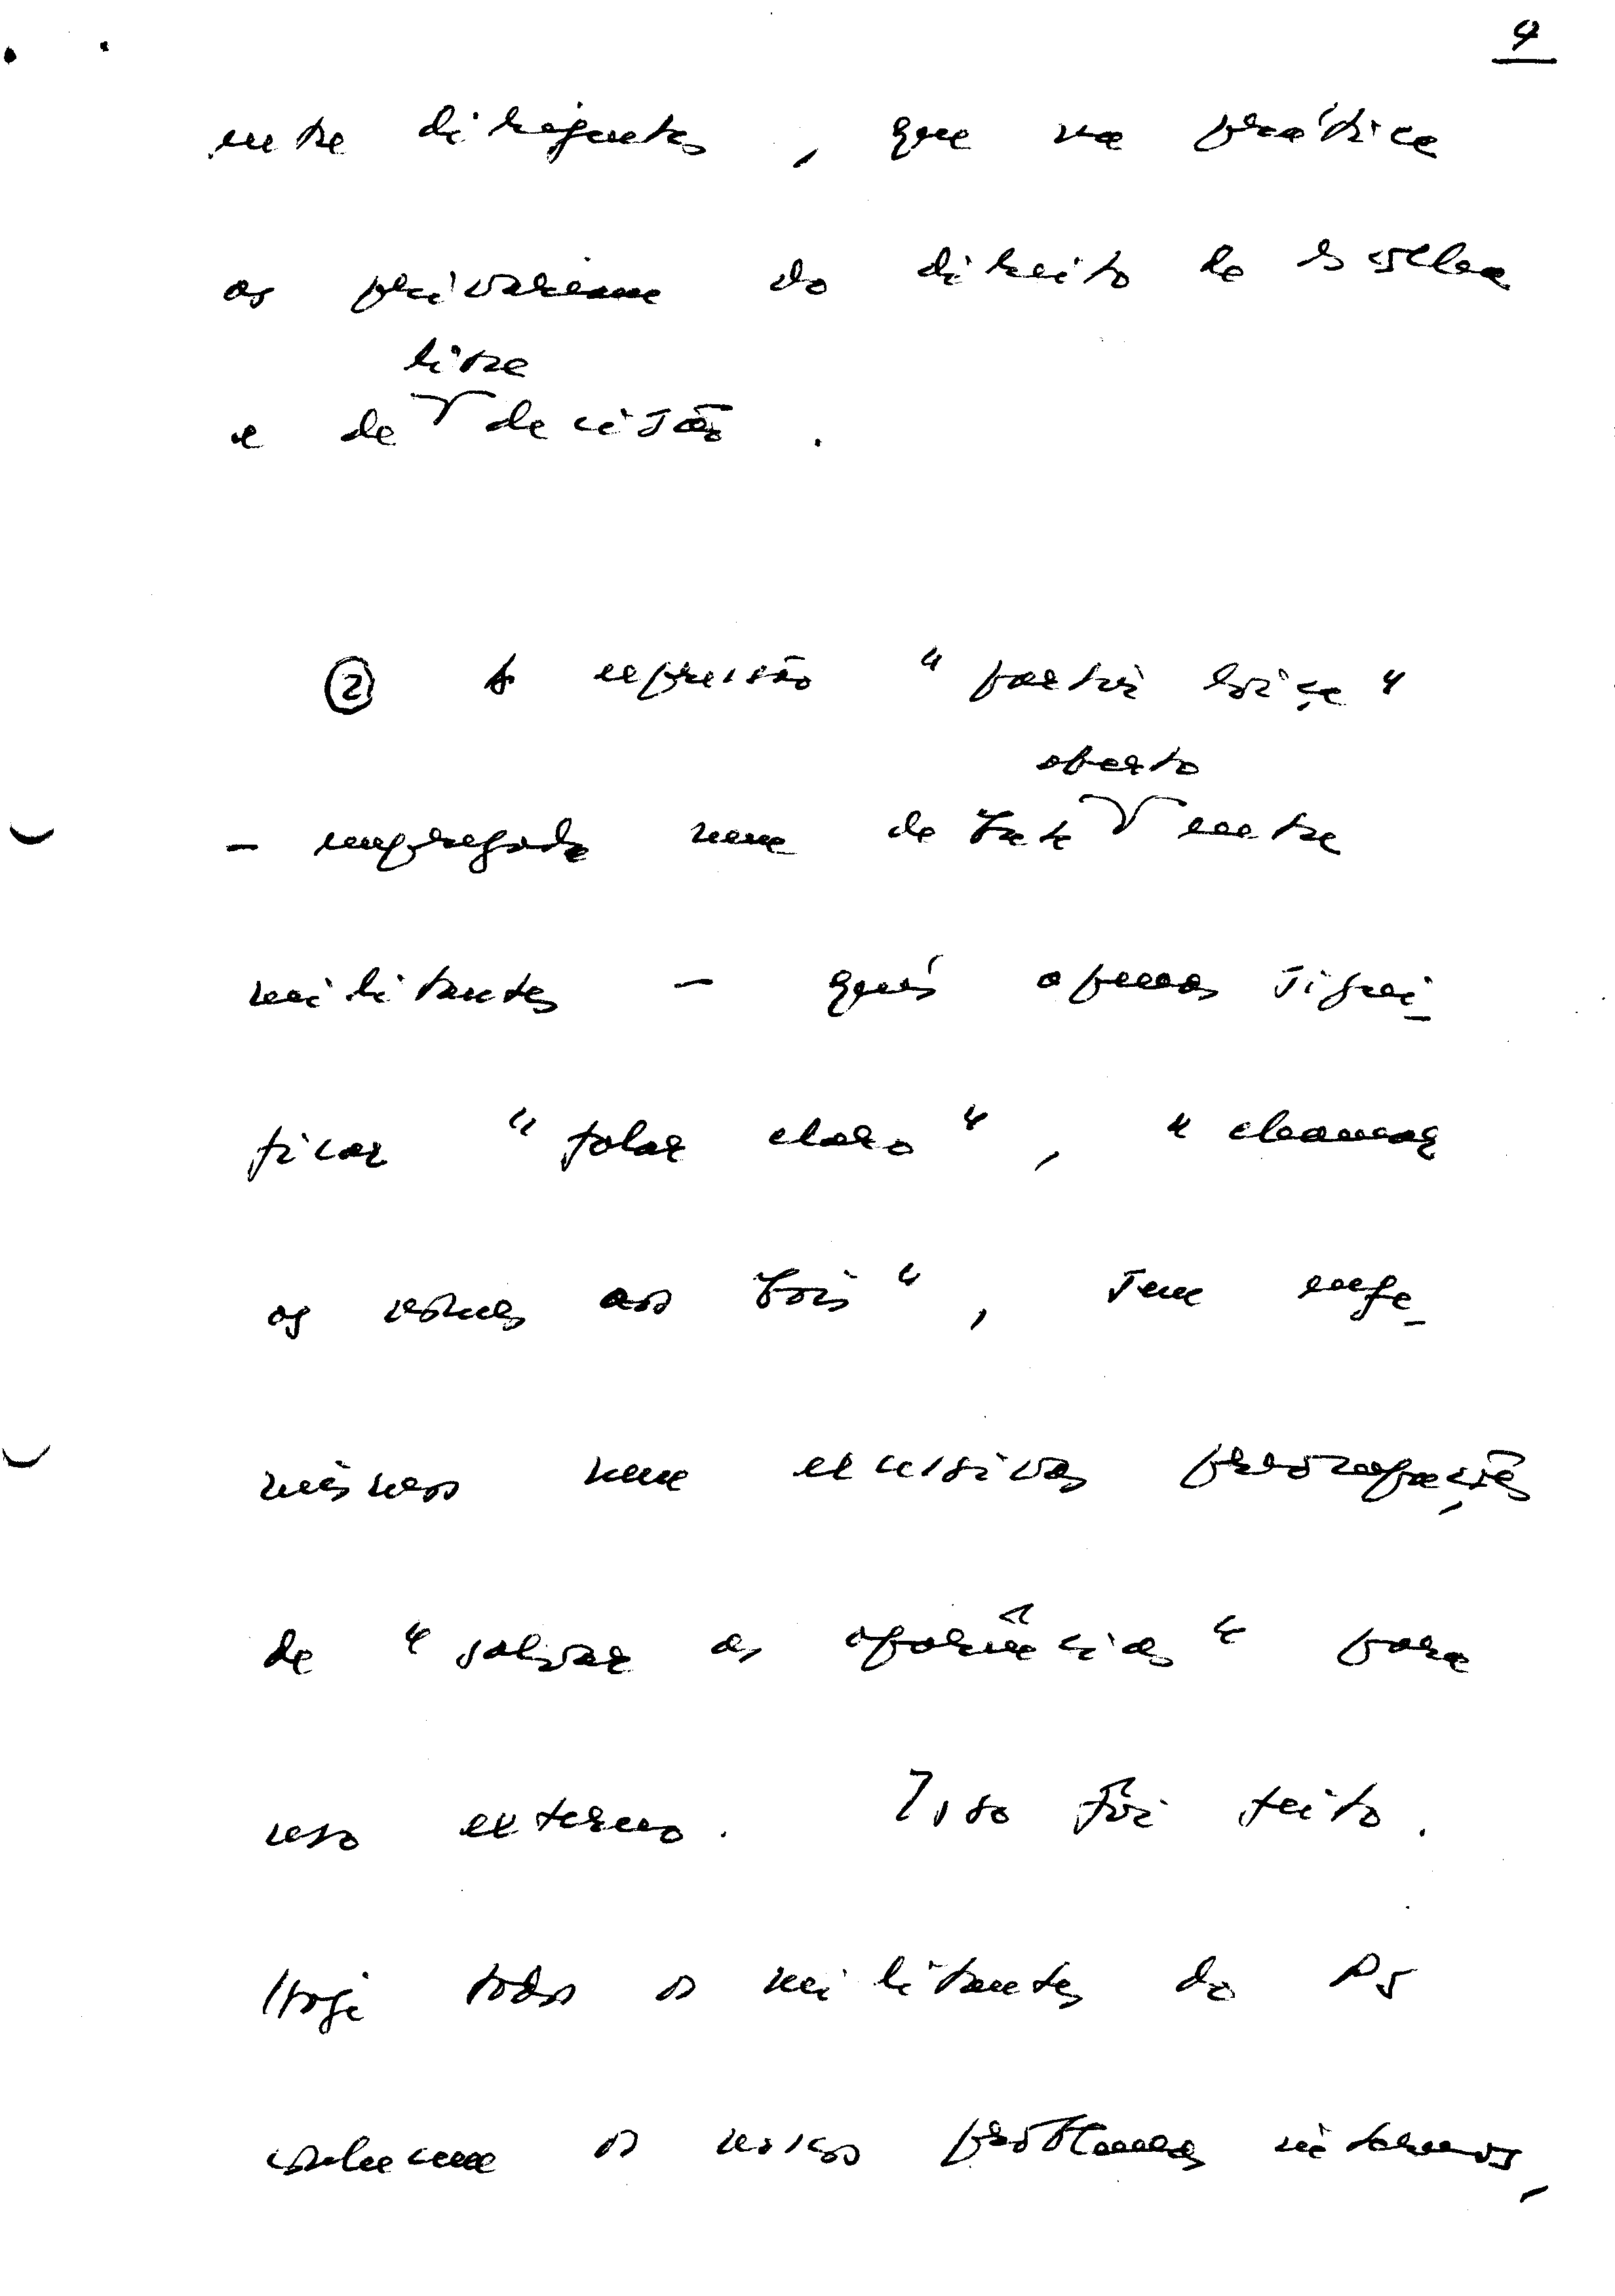 4
entre dirigentes, que na prática
os privariam do direito de escolha
livre
e de decisão.
② A expressão "partir loiça"
aberto
- empregada num debate entre
militantes - quis apenas signi-
ficar "falar claro", "chamar
os nomes aos bois", sem eufe-
mismos nem excessivas preocupações
de "salvar as aparências" para
uso externo. Isso foi feito.
Hoje todos os militantes do PS
conhecem os nossos problemas internos,